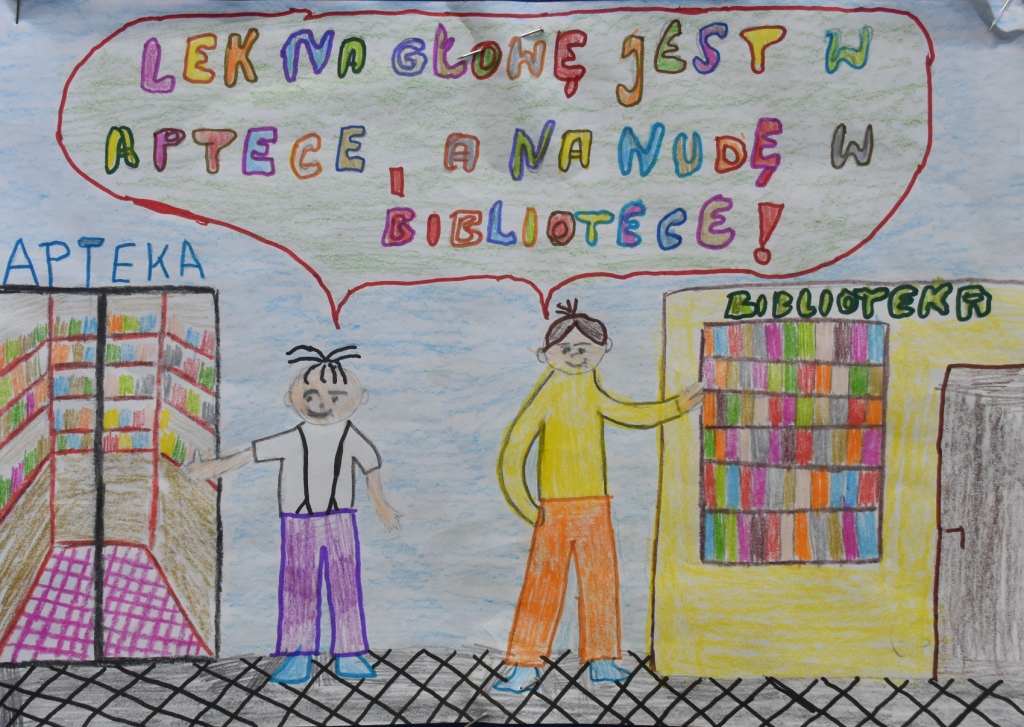 LEK NA GŁOWĘ JEST W
APTECE, A NA NUDĘ W
BIBLIOTECE!
APTEKA
BIBLIOTEKA